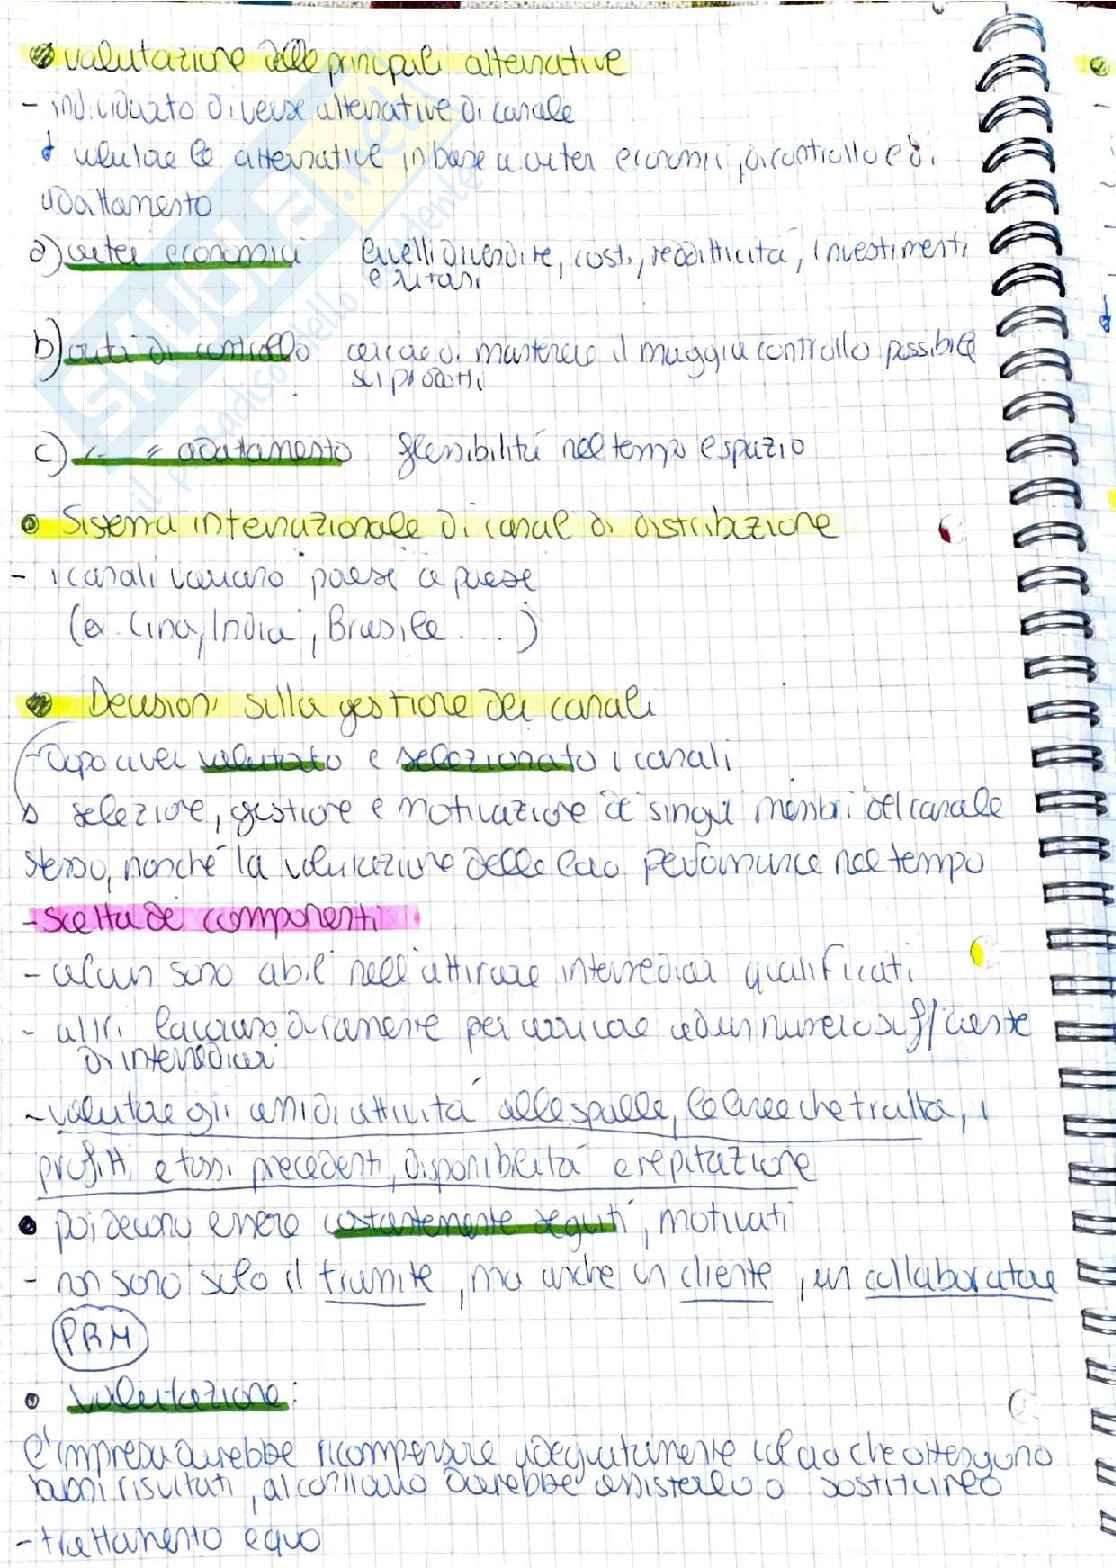 valutazione delle principali alternative
- individuato diverse alternative di canale
valutare le alternative in base a criteri economici, di controllo e di
adattamento
a) criteri economici livelli di vendite, costi, redditività, investimenti
e ritorni
b) criteri di controllo cercare di mantenere il maggior controllo possibile
sui prodotti
c) " " adattamento flessibilità nel tempo e spazio
Sistema internazionale di canali di distribuzione
- i canali variano paese a paese
(es. Cina, India, Brasile ...)
Decisioni sulla gestione dei canali
- Dopo aver valutato e selezionato i canali
selezione, gestione e motivazione dei singoli membri del canale
stesso, nonché la valutazione delle loro performance nel tempo
- scelta dei componenti
- alcuni sono abili nell'attirare intermediari qualificati
- altri lavorano duramente per arrivare ad un numero sufficiente
di intermediari
- valutare gli anni di attività alle spalle, le linee che tratta, i
profitti e tassi precedenti, disponibilità e reputazione
poi devono essere costantemente seguiti, motivati
- non sono solo il tramite, ma anche un cliente, un collaboratore
PRM
valutazione:
l'impresa dovrebbe ricompensare adeguatamente coloro che ottengono
buoni risultati, al contrario dovrebbe assisterlo o sostituirlo
- trattamento equo
SKUOLA.net
il paradiso dello studente